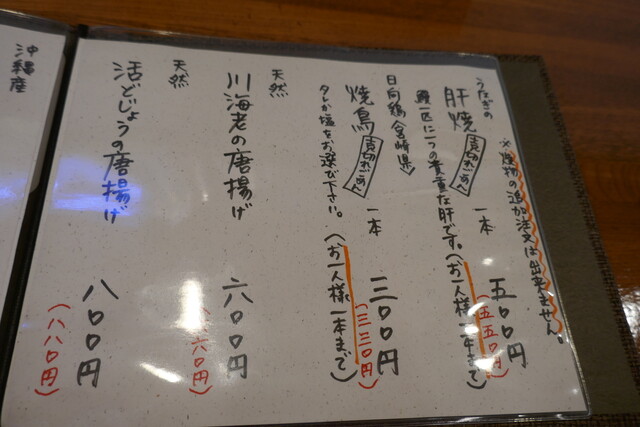 ※焼物の追加注文は出来ません。
うなぎの
肝焼 売切れごめん 一本 五〇〇円
(五五〇円)
鰻一匹に一つの貴重な肝です。(お一人様一本まで)
日向鶏(宮崎県)
焼鳥 売切れごめん 一本 三〇〇円
(三三〇円)
タレか塩をお選び下さい。(お一人様一本まで)
天然
川海老の唐揚げ 六〇〇円
六〇円)
天然
活どじょうの唐揚げ 八〇〇円
(八八〇円)
沖縄産